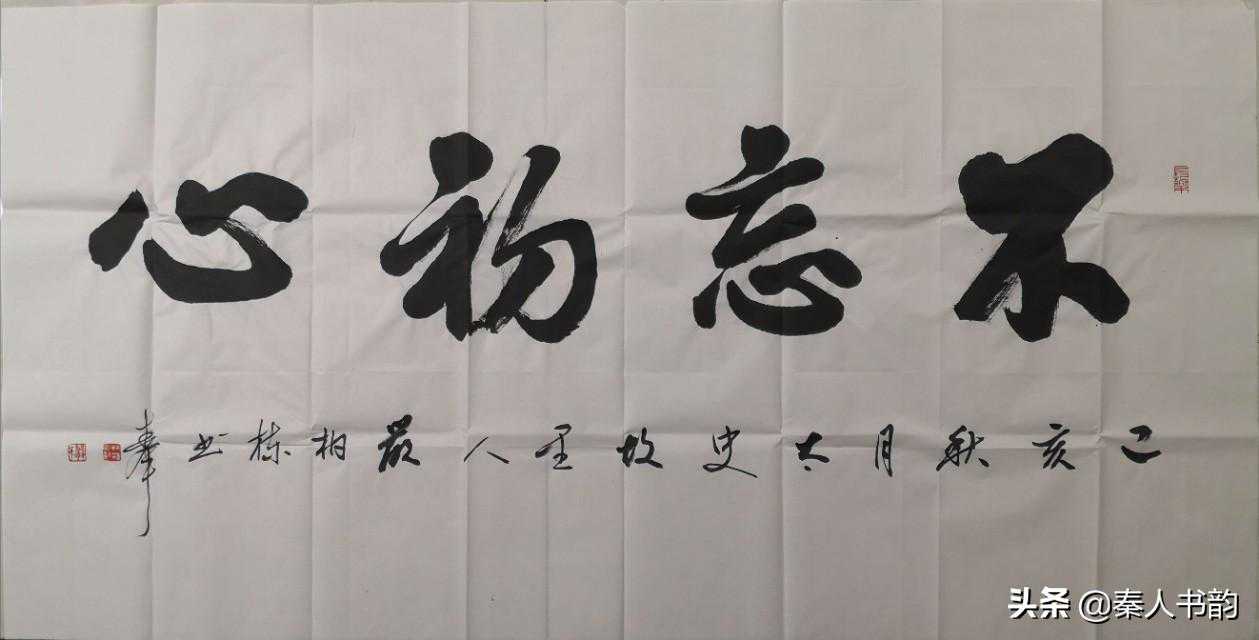 不忘初心
己亥秋月太史故里人严相栋书奉
头条 @秦人书韵